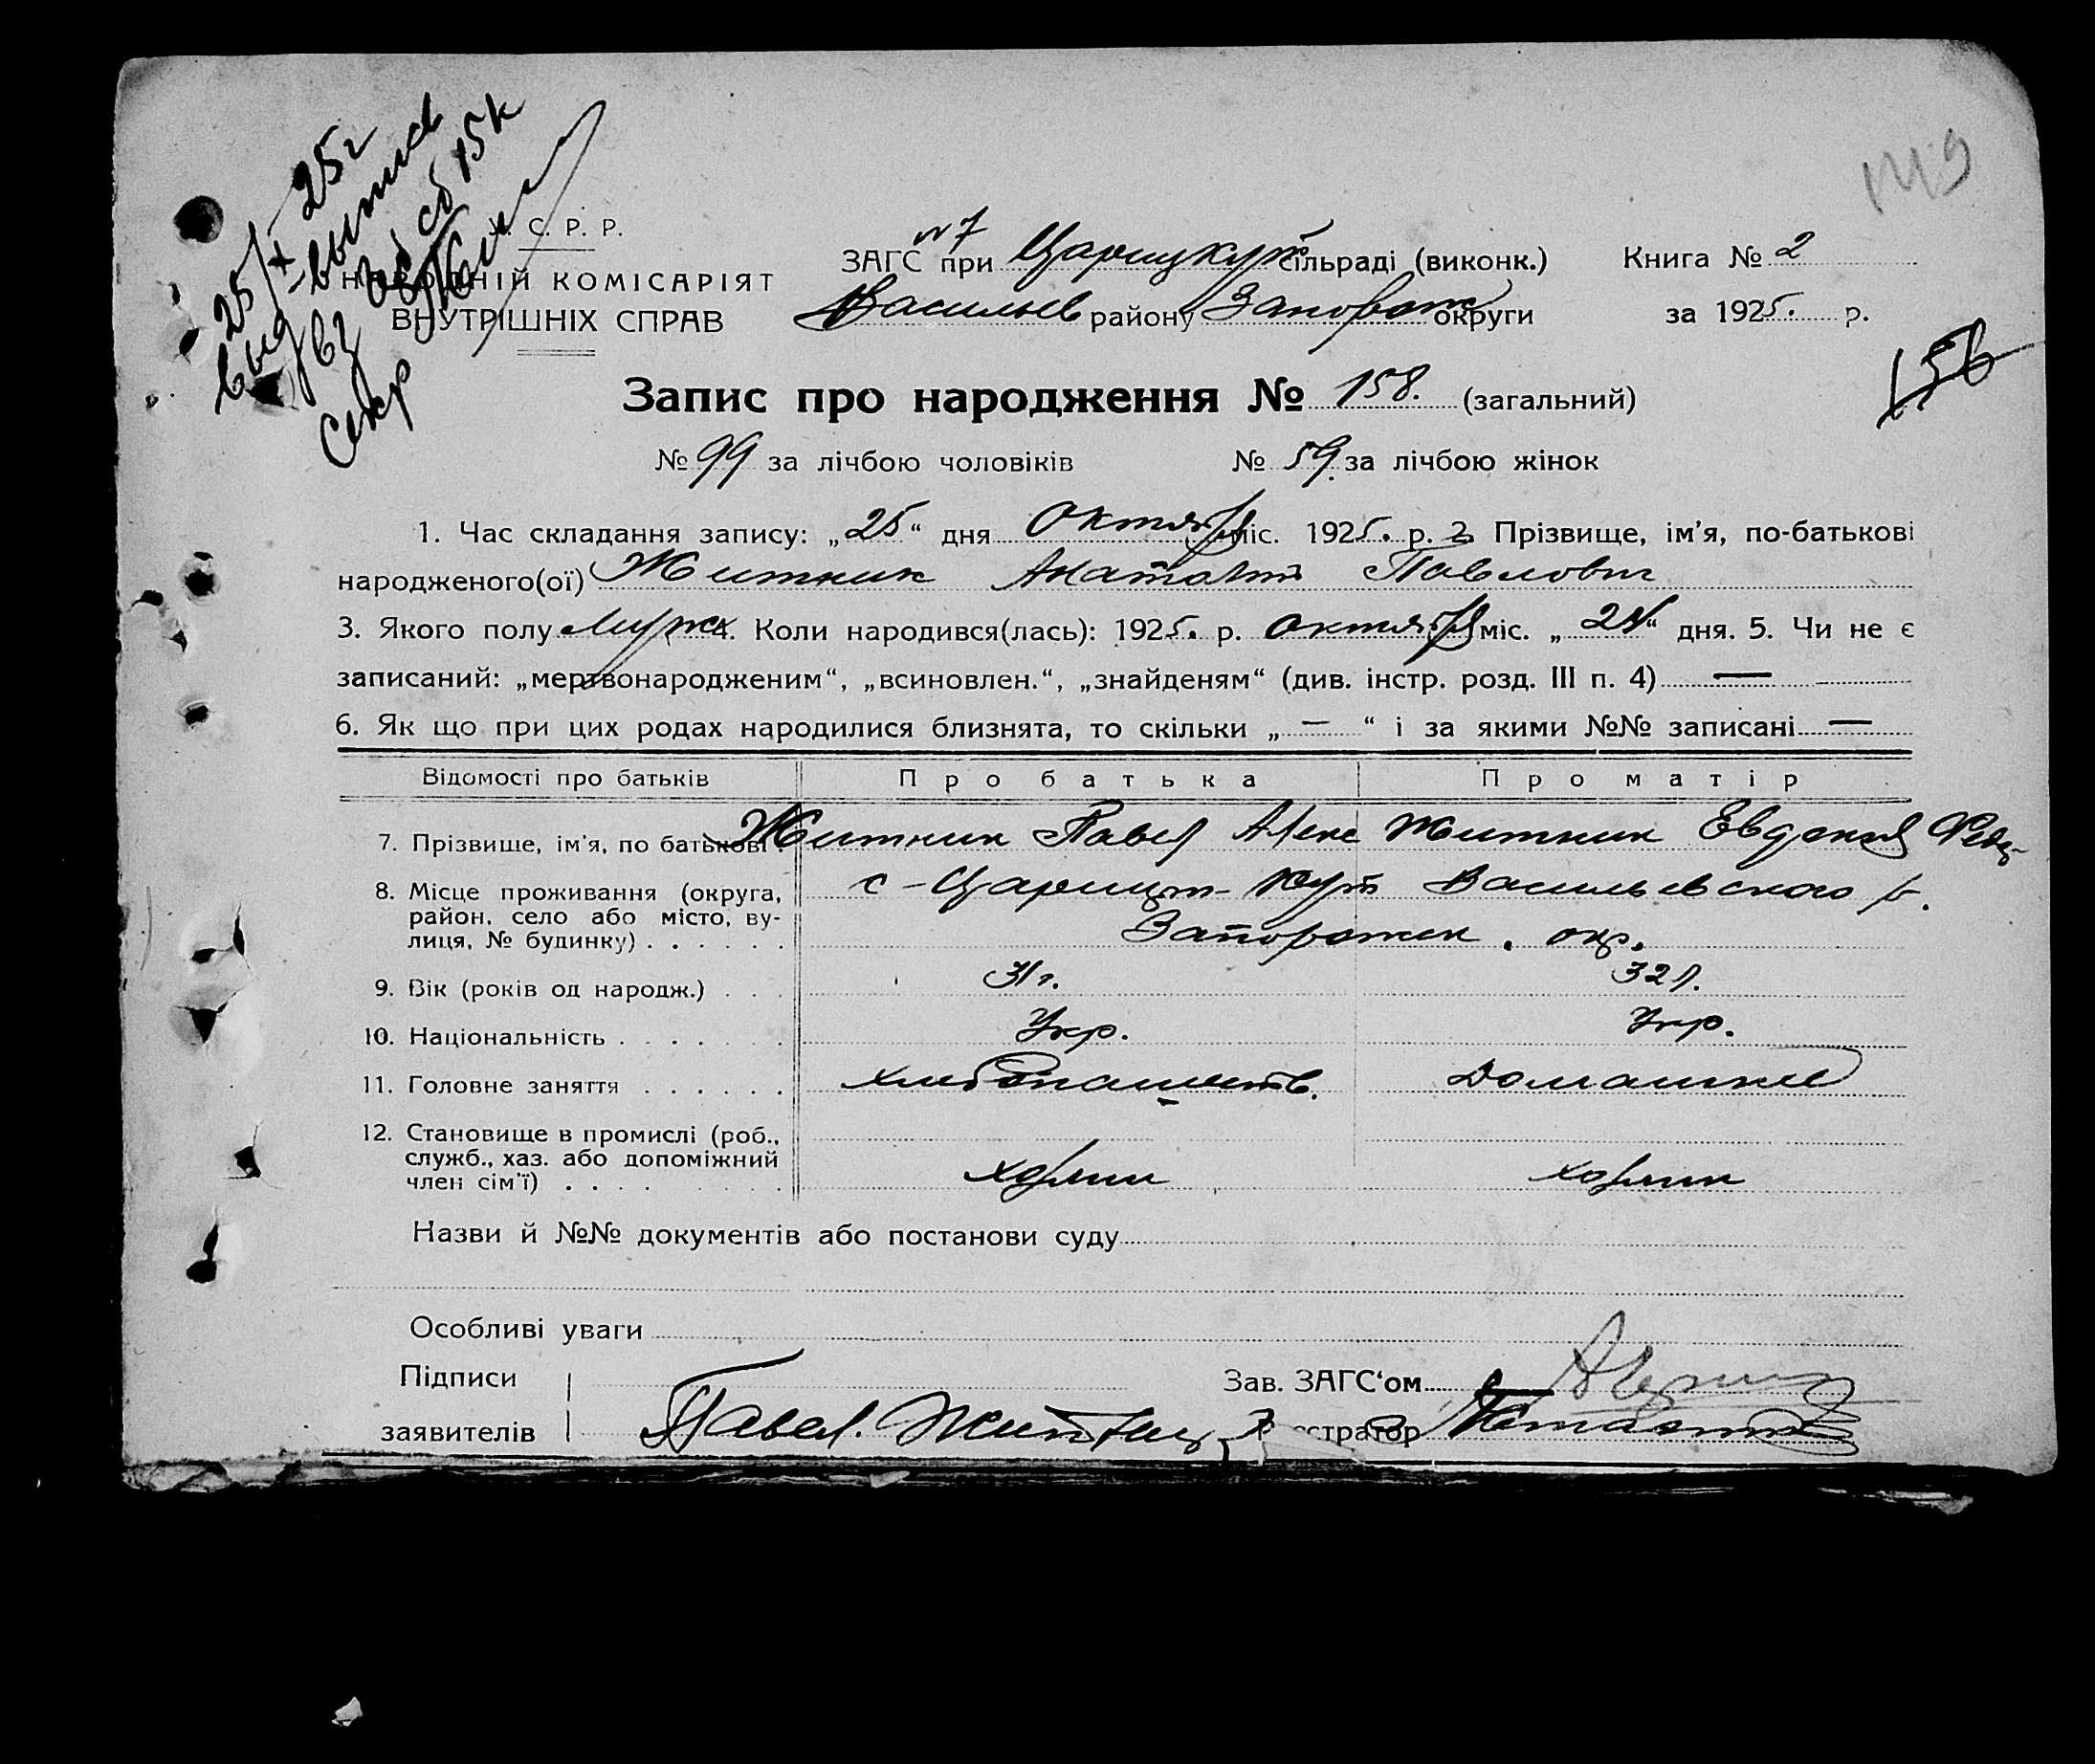 25/X-25г
выд-выпись
вз об сб 15к
Секр
У. С. Р. Р.
НАРОДНІЙ КОМІСАРІЯТ
ВНУТРІШНІХ СПРАВ
149
№ 7
ЗАГС при Царицкут сільраді (виконк.) Книга № 2
Васильев району Запорож округи за 1925. р.
156
Запис про народження № 158. (загальний)
№ 99 за лічбою чоловіків № 59. за лічбою жінок
1. Час складання запису: „25“ дня Октября міс. 1925. р. 2. Прізвище, ім’я, по-батькові
народженого(ої) Житник Анатолий Павлович
3. Якого полу Мужс 4. Коли народився(лась): 1925. р. Октября міс. „24“ дня. 5. Чи не є
записаний: „мертвонародженим“, „всиновлен.“, „знайденям“ (див. інстр. розд. III п. 4) —
6. Як що при цих родах народилися близнята, то скільки „ — “ і за якими №№ записані —
Відомості про батьків Про батька Про матір
7. Прізвище, ім’я, по батькові. Житник Павел Алекс Житник Евдокия Фед-
8. Місце проживання (округа, с-Царицын-Кут Васильевского р.
район, село або місто, ву-
лиця, № будинку) . . . . . . Запорожск. окр.
9. Вік (років од народж.) . . . 31г. 32л.
10. Національність . . . . . . . Укр. Укр.
11. Головне заняття . . . . . . хлебопашеств. Домашнее
12. Становище в промислі (роб.,
служб., хаз. або допоміжний
член сім’ї) . . . . . . . . хозяин хозяин
Назви й №№ документів або постанови суду
Особливі уваги
Підписи Зав. ЗАГС‘ом
заявителів Павел. Житник стратор